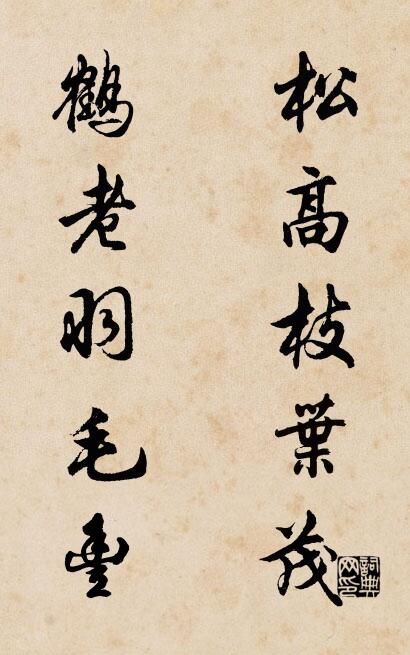 松高枝葉茂
鶴老羽毛豊
詞典网印